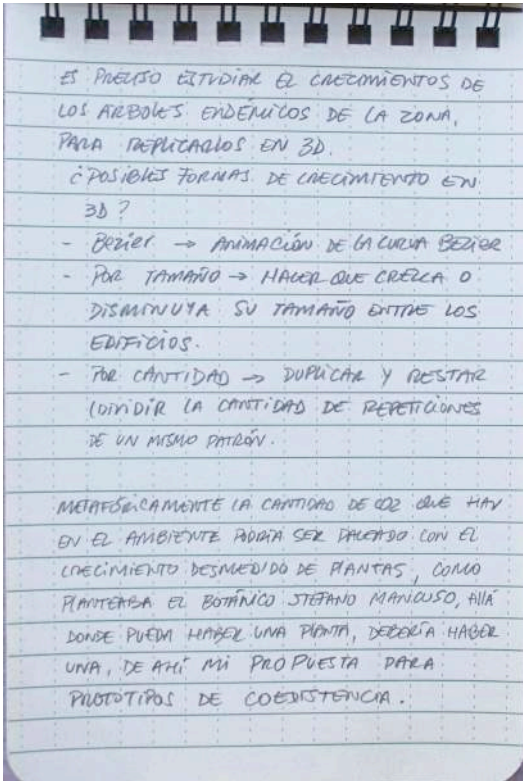 ES PRECISO ESTUDIAR EL CRECIMIENTOS DE
LOS ARBOLES ENDÉMICOS DE LA ZONA,
PARA REPLICARLOS EN 3D.
¿POSIBLES FORMAS DE CRECIMIENTO EN
3D?
- Bezier → ANIMACIÓN DE LA CURVA BEZIER
- POR TAMAÑO → HACER QUE CREZCA O
DISMINUYA SU TAMAÑO ENTRE LOS
EDIFICIOS.
- POR CANTIDAD → DUPLICAR Y RESTAR
(DIVIDIR LA CANTIDAD DE REPETICIONES
DE UN MISMO PATRÓN.
METAFÓRICAMENTE LA CANTIDAD DE CO2 QUE HAY
EN EL AMBIENTE PODRÍA SER PALEADO CON EL
CRECIMIENTO DESMEDIDO DE PLANTAS, COMO
PLANTEABA EL BOTÁNICO STEFANO MANCUSO, ALLÁ
DONDE PUEDA HABER UNA PLANTA, DEBERÍA HABER
UNA, DE AHÍ MI PROPUESTA PARA
PROTOTIPOS DE COEXISTENCIA.